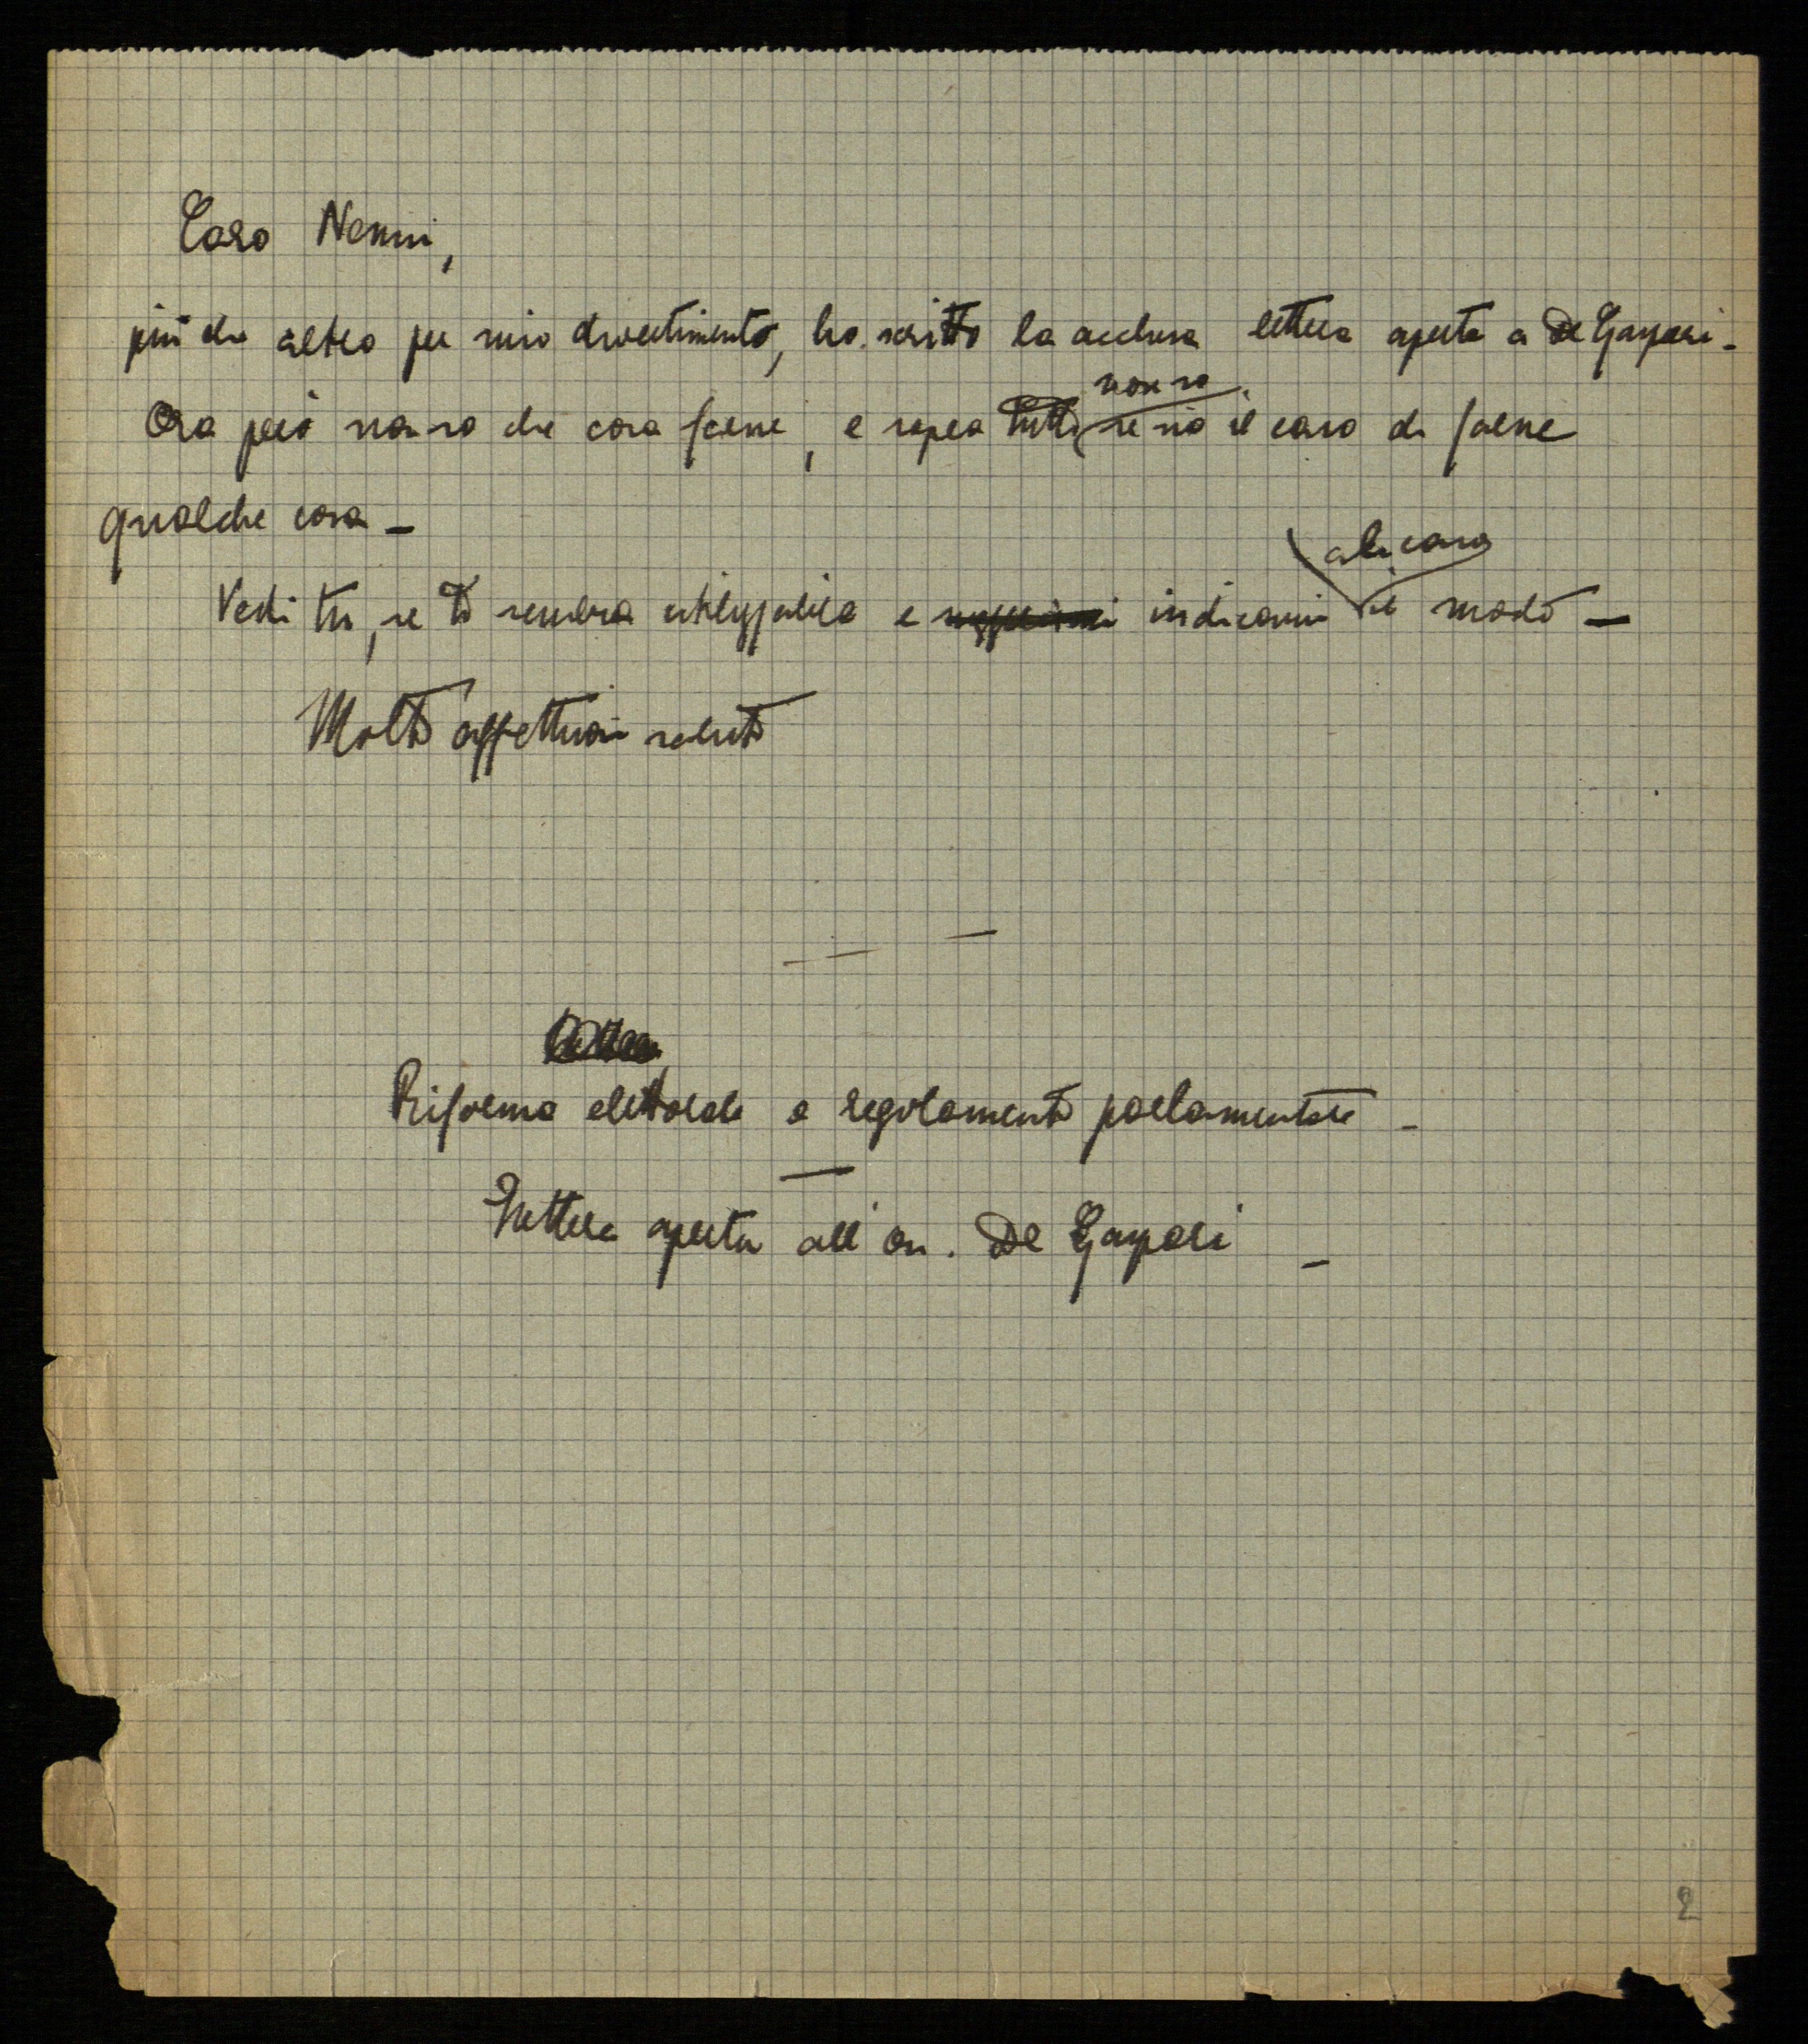 Caro Nenni,
più che altro per mio divertimento, ho scritto la acclusa lettera aperta a De Gasperi -
non so
Ora però non so che cosa farne, e sopra tutto se sia il caso di farne
qualche cosa -
al caso
Vedi tu, se ti sembra utilizzabile e indicami il modo -
Molti affettuosi saluti
Riforma elettorale e regolamento parlamentare -
Lettera aperta all'on. De Gasperi -
2